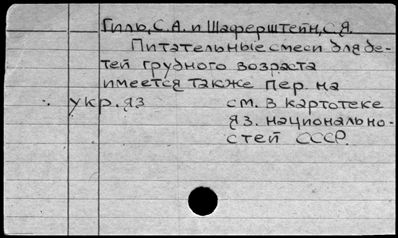 Гиль, С.А. и Шаферштейн, С.Я.
Питательные смеси для де-
тей грудного возраста
имеется также пер. на
укр. яз см. в картотеке
яз. национально-
стей СССР.